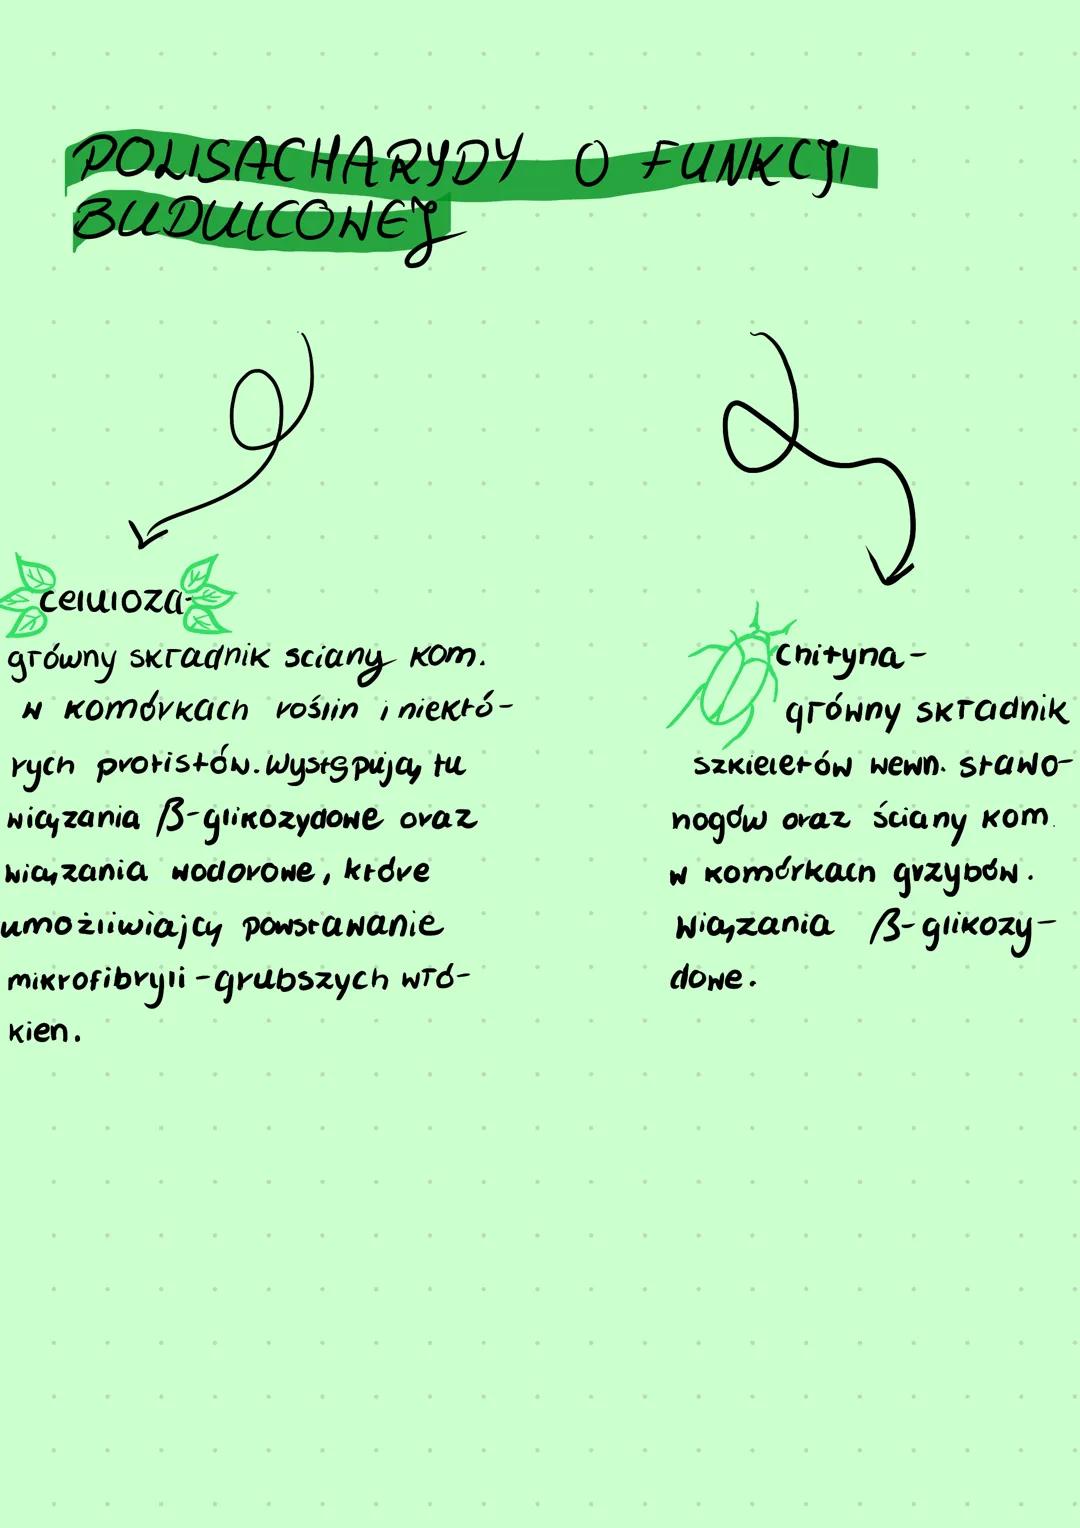 POLISACHARYDY O FUNKCJI
BUDULCOWEJ
celuloza-
główny składnik sciany kom.
w komórkach roślin i niektó-
rych protistów. Występują tu
wiązania β-glikozydowe oraz
wiązania wodorowe, które
umożliwiają powstawanie
mikrofibryli - grubszych włó-
kien.
Chityna -
główny składnik
szkieletów wewn. stawo-
nogów oraz ściany kom.
w komórkach grzybów.
Wiązania β-glikozy-
dowe.